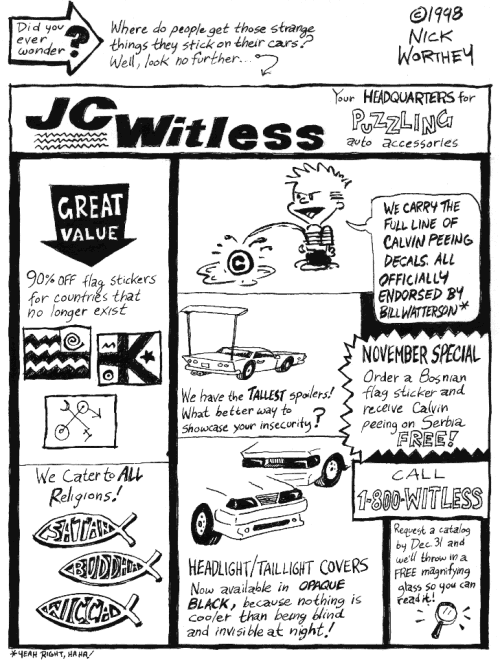 Did you
ever
wonder
?
Where do people get those strange
things they stick on their cars?
Well, look no further...
©1998
NICK
WORTHEY
JC Witless
Your HEADQUARTERS for
PUZZLING
auto accessories
GREAT
VALUE
90% OFF flag stickers
for countries that
no longer exist
K
We Cater to ALL
Religions!
SATAN
BUDDHA
WICCA
C
WE CARRY THE
FULL LINE OF
CALVIN PEEING
DECALS. ALL
OFFICIALLY
ENDORSED BY
BILL WATTERSON*
We have the TALLEST spoilers!
What better way to
showcase your insecurity?
NOVEMBER SPECIAL
Order a Bosnian
flag sticker and
receive Calvin
peeing on Serbia
FREE!
HEADLIGHT/TAILLIGHT COVERS
Now available in OPAQUE
BLACK, because nothing is
cooler than being blind
and invisible at night!
CALL
1-800-WITLESS
Request a catalog
by Dec. 31 and
we'll throw in a
FREE magnifying
glass so you can
read it!
*YEAH RIGHT, HAHA!